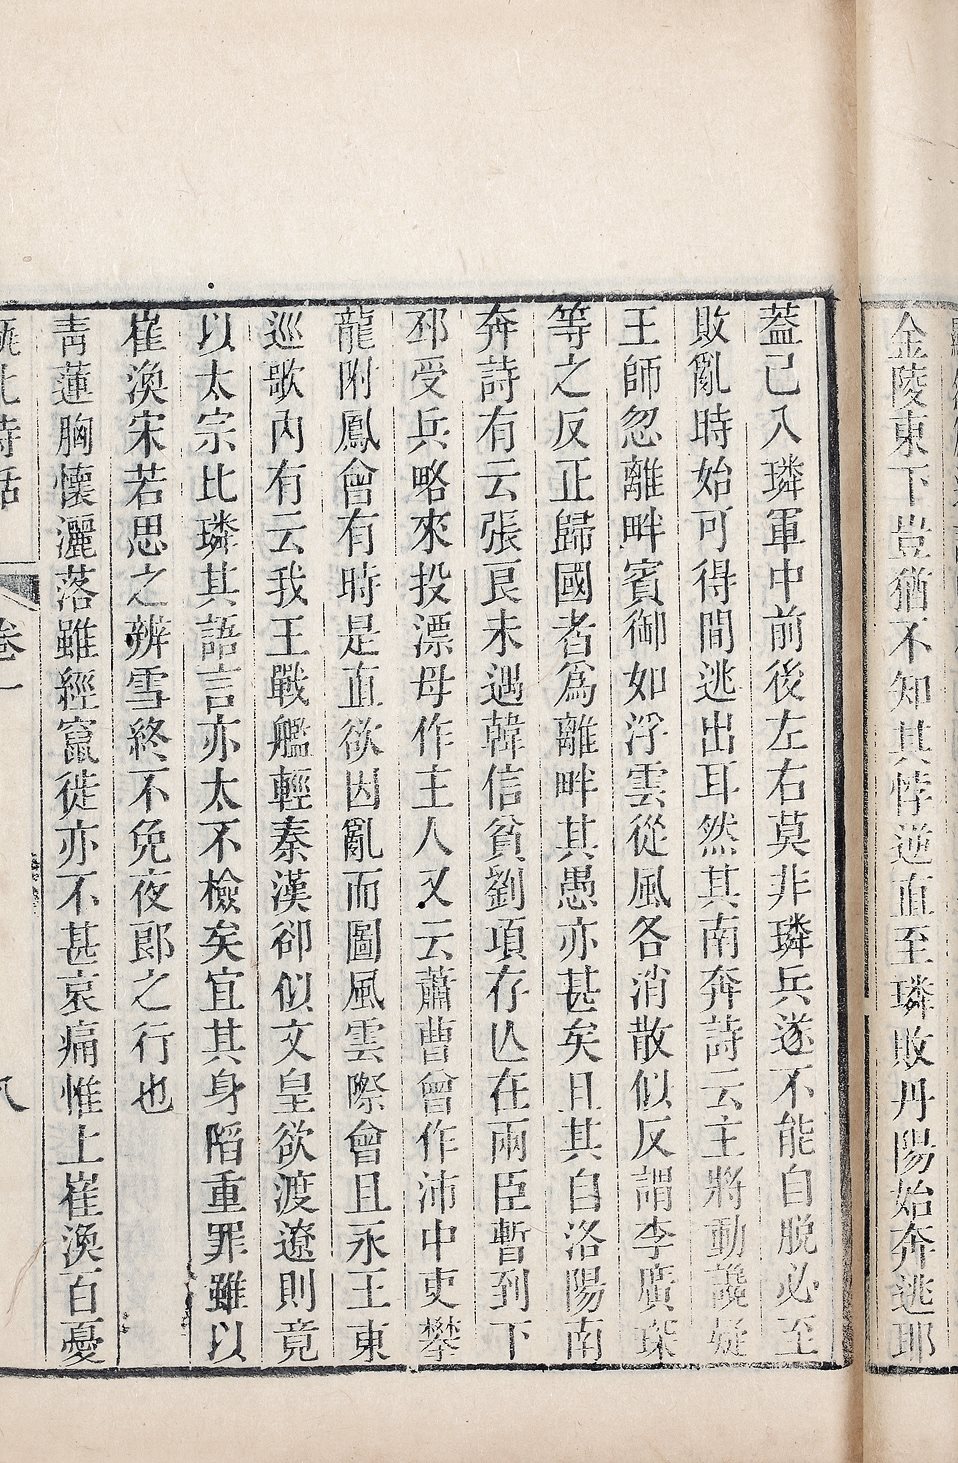 金陵東下豈猶不知其悖逆直至璘敗丹陽始奔逃耶
葢已入璘軍中前後左右莫非璘兵遂不能自脫必至
敗亂時始可得間逃出耳然其南奔詩云主將動讒疑
王師忽離畔賓御如浮雲從風各消散似反謂李廣琛
等之反正歸國者爲離畔其愚亦甚矣且其自洛陽南
奔詩有云張良未遇韓信貧劉項存亾在兩臣暫到下
邳受兵略來投漂母作主人又云蕭曹曾作沛中吏攀
龍附鳳會有時是直欲因亂而圖風雲際會且永王東
巡歌內有云我王戰艦輕秦漢卻似文皇欲渡遼則竟
以太宗比璘其語言亦太不檢矣宜其身陷重罪雖以
崔渙宋若思之辨雪終不免夜郞之行也
靑蓮胸懷灑落雖經竄徙亦不甚哀痛惟上崔渙百憂
甌北詩話
卷一
八